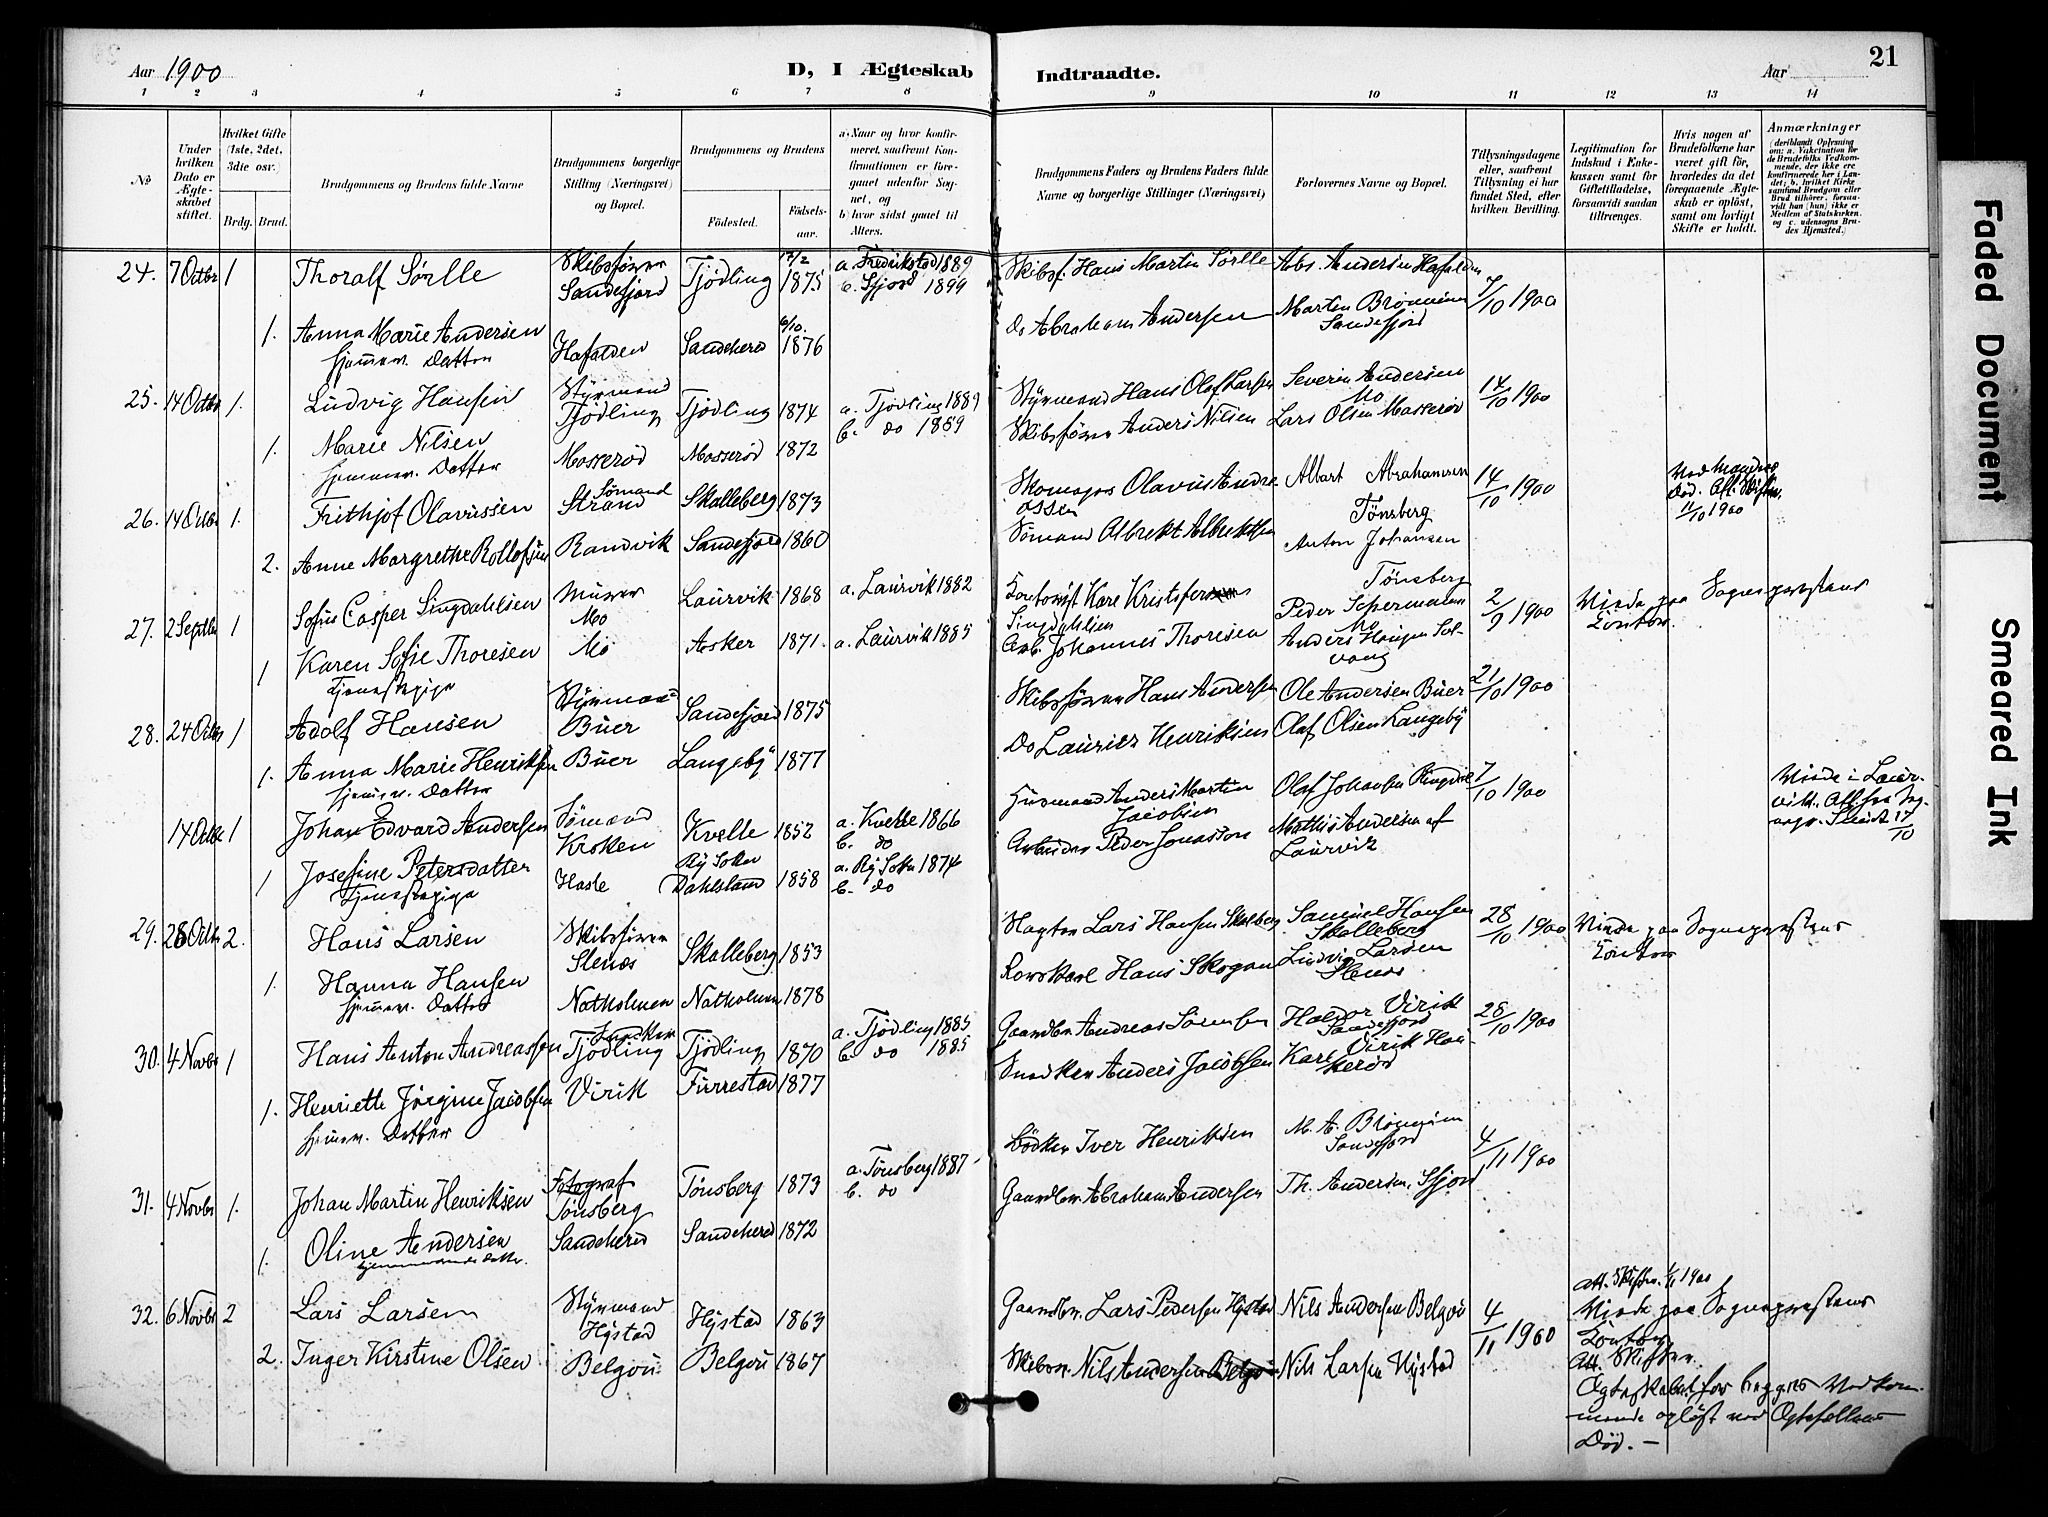 Aar 1900
D, I Ægteskab Indtraadte.
Aar
21
1 2 3 4 5 6 7 8 9 10 11 12 13 14
No
Under hvilken Dato er Ægteskabet stiftet.
Hvilket Gifte (1ste, 2det, 3die osv.)
Brdg. Brud.
Brudgommens og Brudens fulde Navne
Brudgommens borgerlige Stilling (Næringsvei) og Bopæl.
Brudgommens og Brudens
Fødested.
Fødsels-aar.
a) Naar og hvor konfirmeret, saafremt Konfirmationen er foregaaet udenfor Sognet, og
b) hvor sidst gaaet til Alters.
Brudgommens Faders og Brudens Faders fulde Navne og borgerlige Stillinger (Næringsvei)
Forlovernes Navne og Bopæl.
Tillysningsdagene eller, saafremt Tillysning ei har fundet Sted, efter hvilken Bevilling.
Legitimation for Indskud i Enkekassen samt for Giftetilladelse, forsaavidt saadan tiltrænges.
Hvis nogen af Brudefolkene har været gift før, hvorledes da det foregaaende Ægteskab er opløst, samt om lovligt Skifte er holdt.
Anmærkninger (deriblandt Oplysning om: a. Vakcination for de Brudefolks Vedkommende, der ikke ere konfirmerede her i Landet; b. hvilket Kirkesamfund Brudgom eller Brud tilhører, forsaavidt han (hun) ikke er Medlem af Statskirken, og c. udensogns Brudes Hjemsted.)
24. 7 Octbr 1 Thoralf Sørlle Skibsfører Sandefjord Tjödling 17/2 1875 a. Fredrikstad 1889 b. Sfjord 1899 Skibsf. Hans Martin Sörlle Abr. Andersen Hafalden 7/10 1900
1. Anna Marie Andersen hjemmev. Datter Hafalden Sandeherd 6/10. 1876 Do Abraham Andersen Martin Bronnum Sandefjord
25. 14 Octbr 1. Ludvig Hansen Styrmand Tjödling Tjödling 1874 a. Tjödling 1889 b. do 1889 Styrmand Hans Olaf Larsen Severin Andersen Mo 14/10 1900
1. Marie Nilsen hjemmev. Datter Mosserød Mosserød 1872 Skibsfører Anders Nilsen Lars Olsen Mosserød
26. 14 Octbr 1. Frithjof Olavussen Sømand Strand Skalleberg 1873 Skomager Olavus Andreassen Albert Abrahamsen Tönsberg 14/10 1900 Ved Mandens Död. Att. Skiften 11/10 1900
2. Anne Margrethe Rollofsen Randvik Sandefjord 1860 Sømand Albrekt Albrektsen Anton Johansen Tönsberg
27. 2 Septbr 1 Sofus Casper Singdahlsen Murer Mo Laurvik 1868 a. Laurvik 1882 Kontorist Kare Kristofersen Singdahlsen Peder Schermann Mo 2/9 1900 Viede paa Sogneprestens Kontor
1 Karen Sofie Thoresen Tjenestepige Mo Asker 1871. a. Laurvik 1885 Arb. Johannes Thoresen Anders Haugen Solvang
28. 24 Octbr 1 Adolf Hansen Styrmand Buer Sandefjord 1875 Skibsfører Hans Andersen Ole Andersen Buer 21/10 1900
1. Anna Marie Henriksen hjemmev. Datter Buer Langeby 1877 Do Lauritz Henriksen Olaf Olsen Langeby
14 Octbr 1 Johan Edvard Andersen Sömand Kroken Kvelle 1852 a. Kvelle 1866 b. do Husmand Anders Martin Jacobsen Olaf Johansen Ringdal 7/10 1900 Viede i Laurvik. Att. fra
1 Josefine Petersdatter Tjenestepige Hasle Ry Soken Dahlsland 1858 a. Ry Soken 1874 b. do Arbeider Peder Jonasson Mathis Andersen af Laurvik
29. 28 Octbr 2. Hans Larsen Skibsfører Stenæs Skalleberg 1853 Lars Hansen Skalleberg Samuel Hansen Skalleberg 28/10 1900 Viede paa Sogneprestens Kontor
1. Hanna Hansen hjemmev. Datter Natholmen Natholmen 1878 Hans Skogan Ludvig Larsen Stenæs
30. 4 Novbr 1 Hans Anton Andreassen Snedker Tjödling Tjödling 1870 a. Tjödling 1885 b. do 1885 Gaardbr. Andreas Sörensen Halvor Virik Sandefjord 28/10 1900
1. Henriette Jörgine Jacobsen hjemmev. Datter Virik Furrestad 1877 Snedker Anders Jacobsen Karl Virik Haukerød
31. 4 Novbr 1. Johan Martin Henriksen Fotograf Tønsberg Tønsberg 1873 a. Tönsberg 1887 b. do Bödker Iver Henriksen M. A. Bronnum Sandefjord 4/11 1900
1. Oline Andersen hjemmeværende Datter Sandeherd Sandeherd 1872 Gaardbr. Abraham Andersen Th. Andersen, Sfjord
32. 6 Novbr 2 Lars Larsen Styrmand Hystad Hystad 1863 Gaardbr. Lars Pedersen Hystad Nils Andersen Belgou 4/11 1900 Att. Skiften. 1/11 1900 Viede paa Sogneprestens Kontor
2. Inger Kirstine Olsen Belgou Belgou 1867 Nils Andersen Belgou Nils Larsen Hystad Att. Skiften.
Ægteskabet for begges Vedkommende opløst ved Ægtefellens Död. —
Faded Document
Smeared Ink